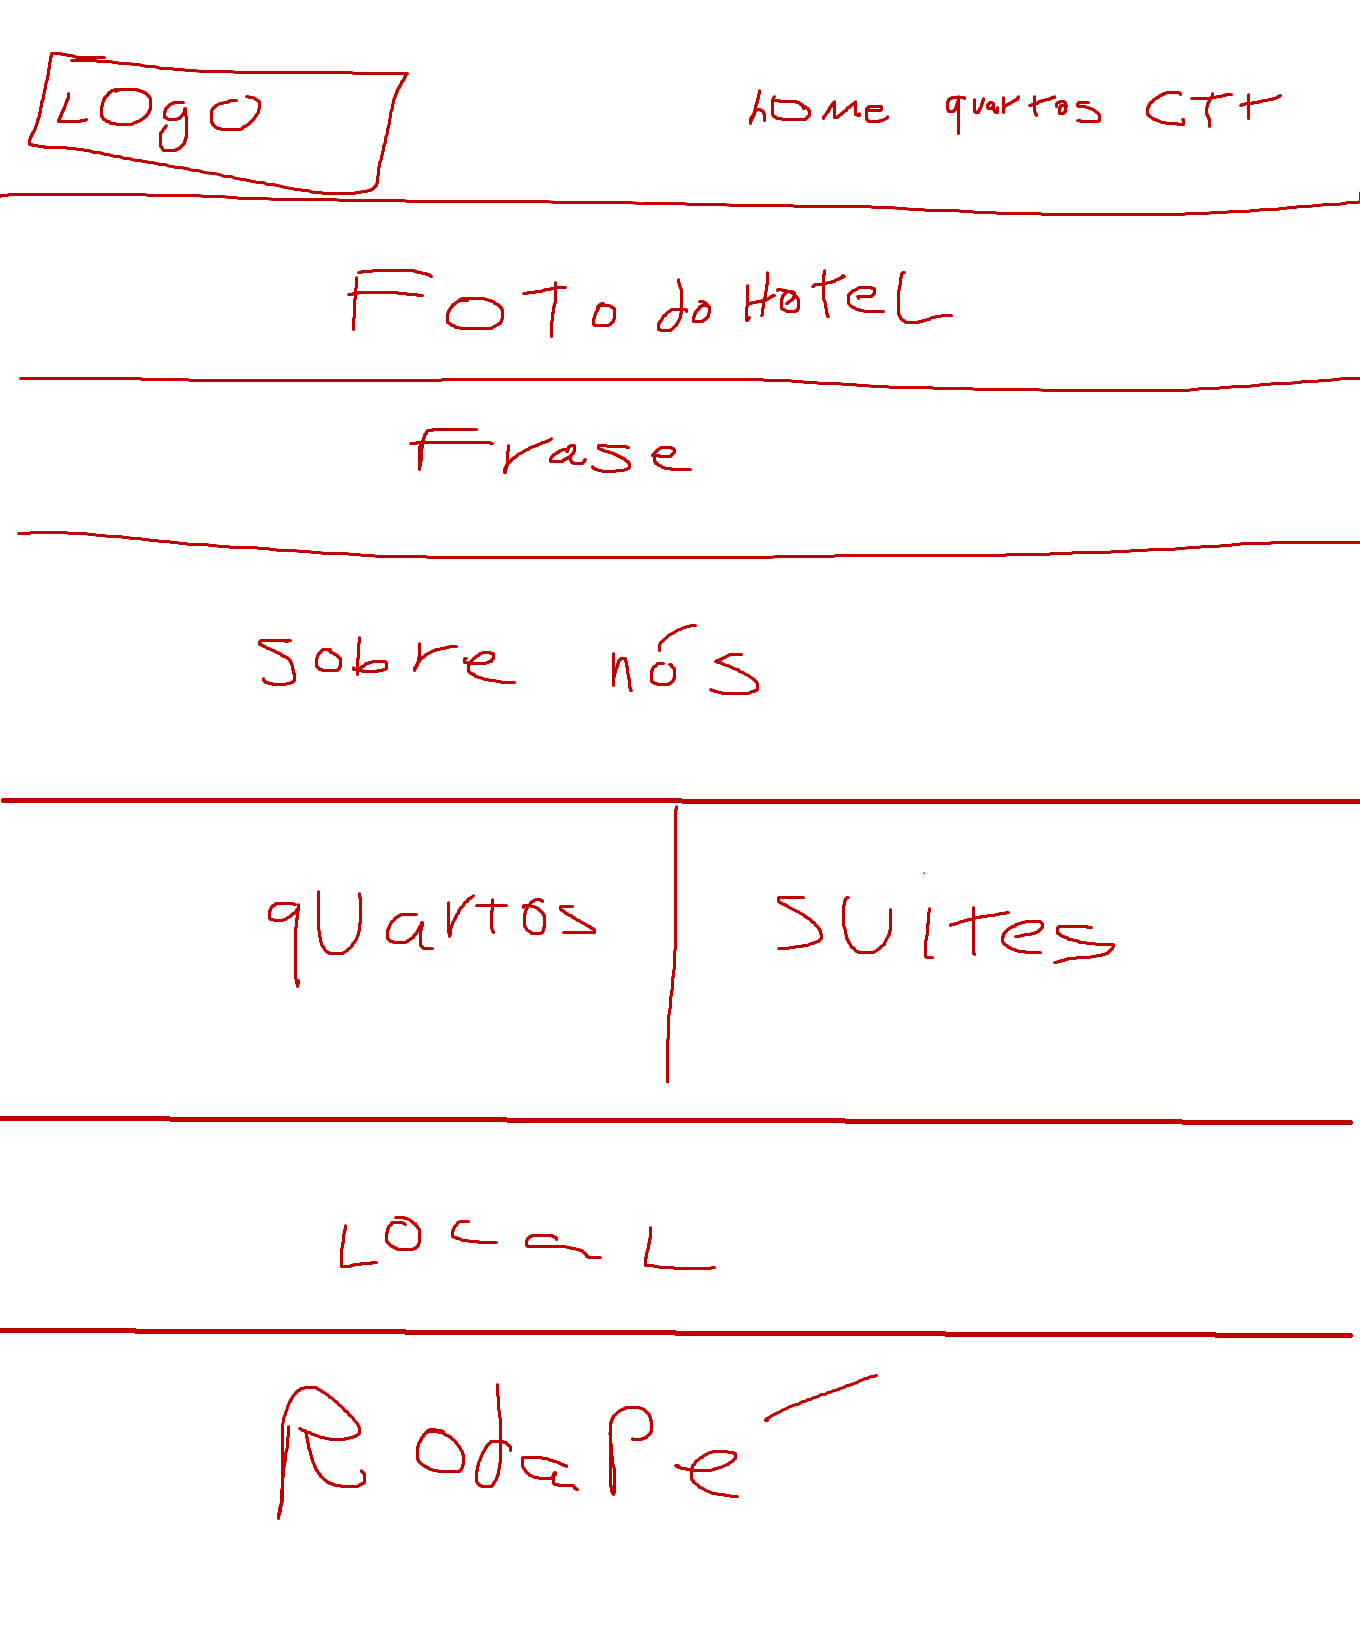 LOgO
home quartos CTT
FOTO do HoteL
Frase
Sobre nós
quartos
SUITes
LocaL
RodaPé